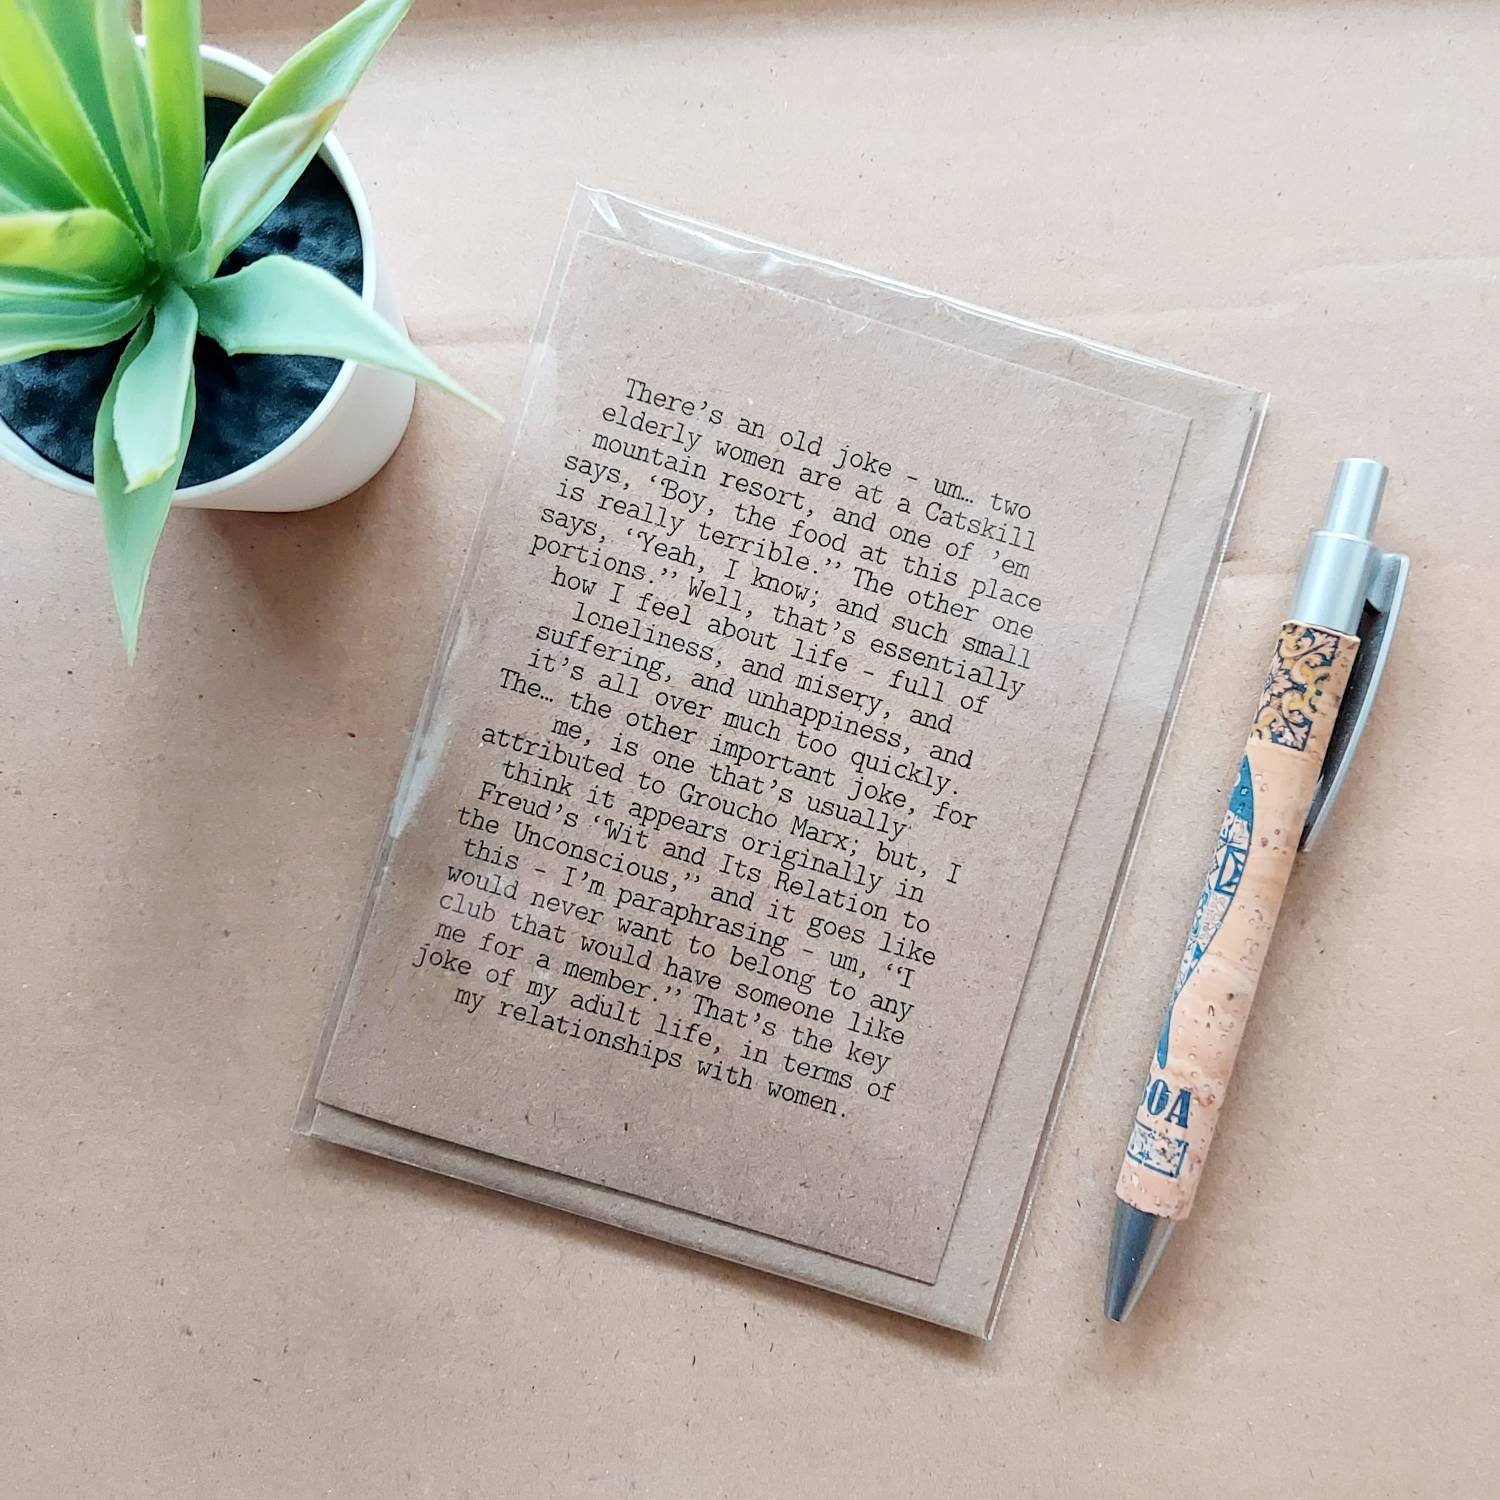 There's an old joke - um… two
elderly women are at a Catskill
mountain resort, and one of 'em
says, “Boy, the food at this place
is really terrible.” The other one
says, “Yeah, I know; and such small
portions.” Well, that's essentially
how I feel about life - full of
loneliness, and misery, and
suffering, and unhappiness, and
it's all over much too quickly.
The… the other important joke, for
me, is one that's usually
attributed to Groucho Marx; but, I
think it appears originally in
Freud's “Wit and Its Relation to
the Unconscious,” and it goes like
this - I'm paraphrasing - um, “I
would never want to belong to any
club that would have someone like
me for a member.” That's the key
joke of my adult life, in terms of
my relationships with women.